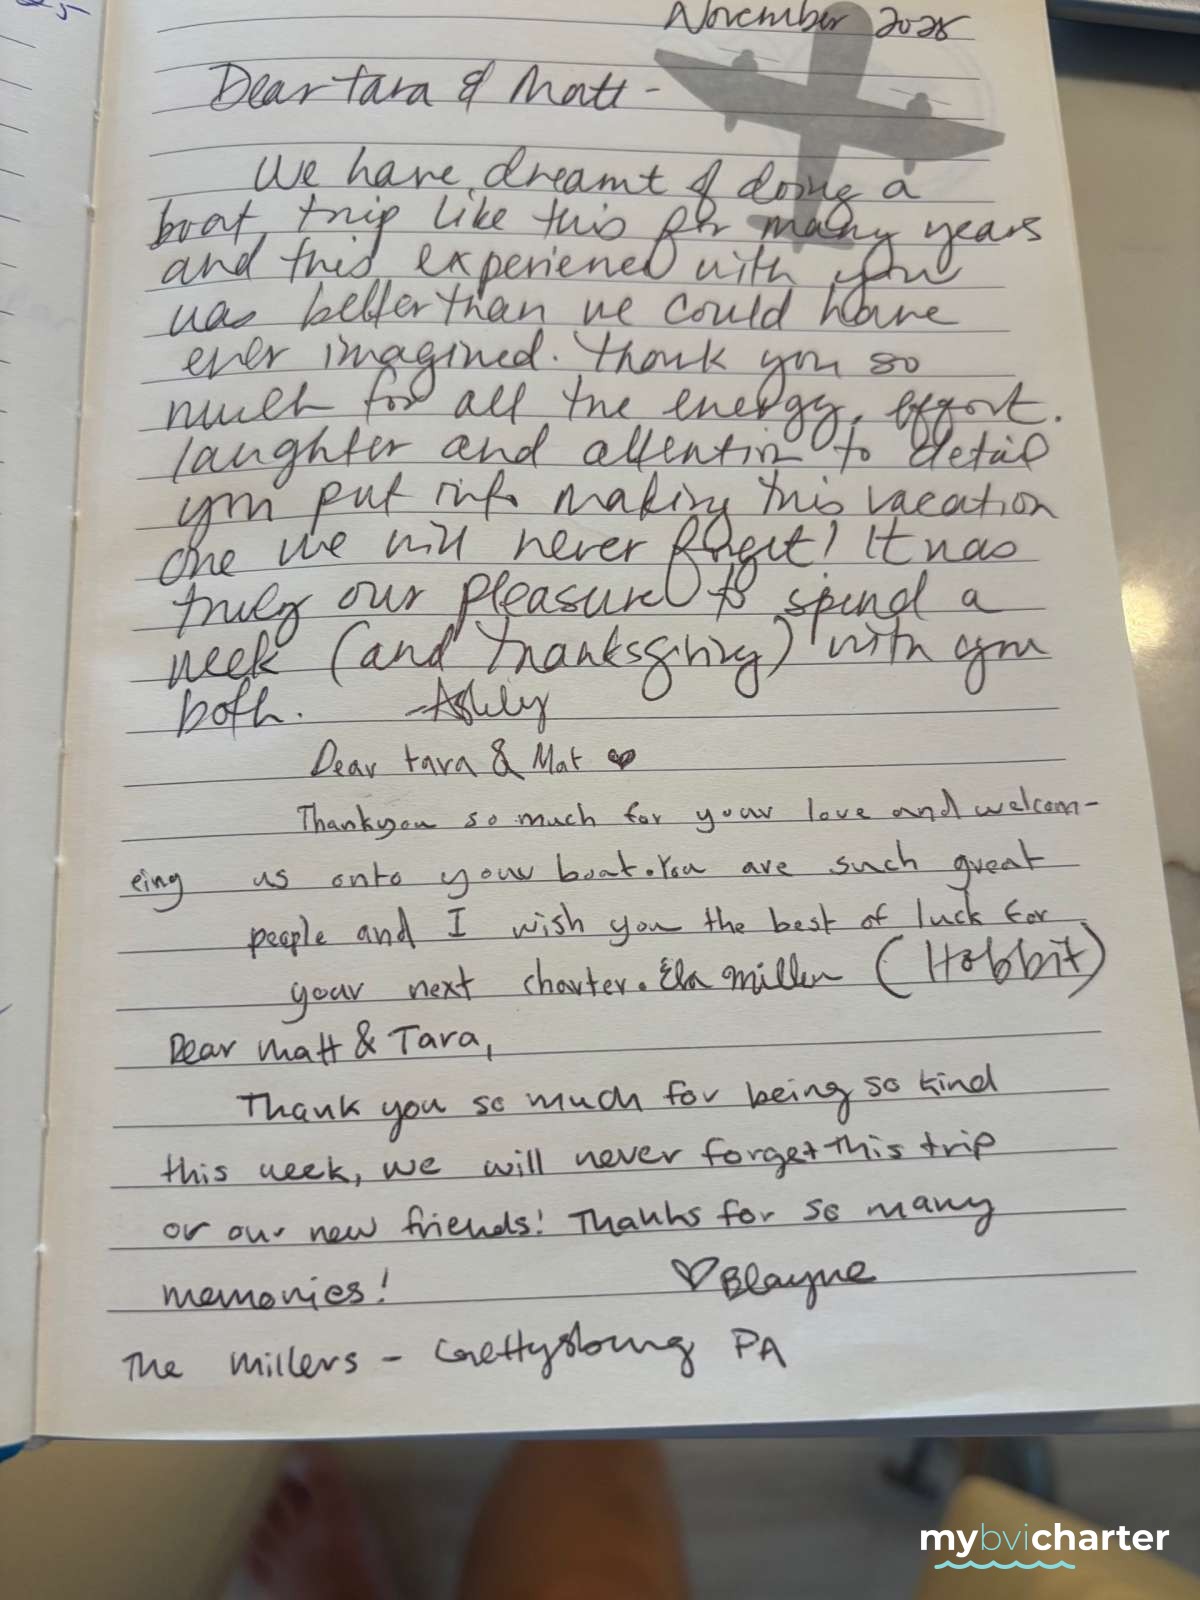 November 2025
Dear Tara & Matt -
We have dreamt of doing a
boat trip like this for many years
and this experience with you
was better than we could have
ever imagined. Thank you so
much for all the energy, effort,
laughter and attention to detail
you put into making this vacation
one we will never forget! It was
truly our pleasure to spend a
week (and Thanksgiving) with you
both. -Ashley
Dear Tara & Mat ♥
Thankyou so much for your love and welcom-
eing us onto your boat. You are such great
people and I wish you the best of luck for
your next charter. Ela Miller (Hobbit)
Dear Matt & Tara,
Thank you so much for being so kind
this week, we will never forget this trip
or our new friends! Thanks for so many
memories! ♡Blayne
The Millers - Gettysburg PA
mybvicharter